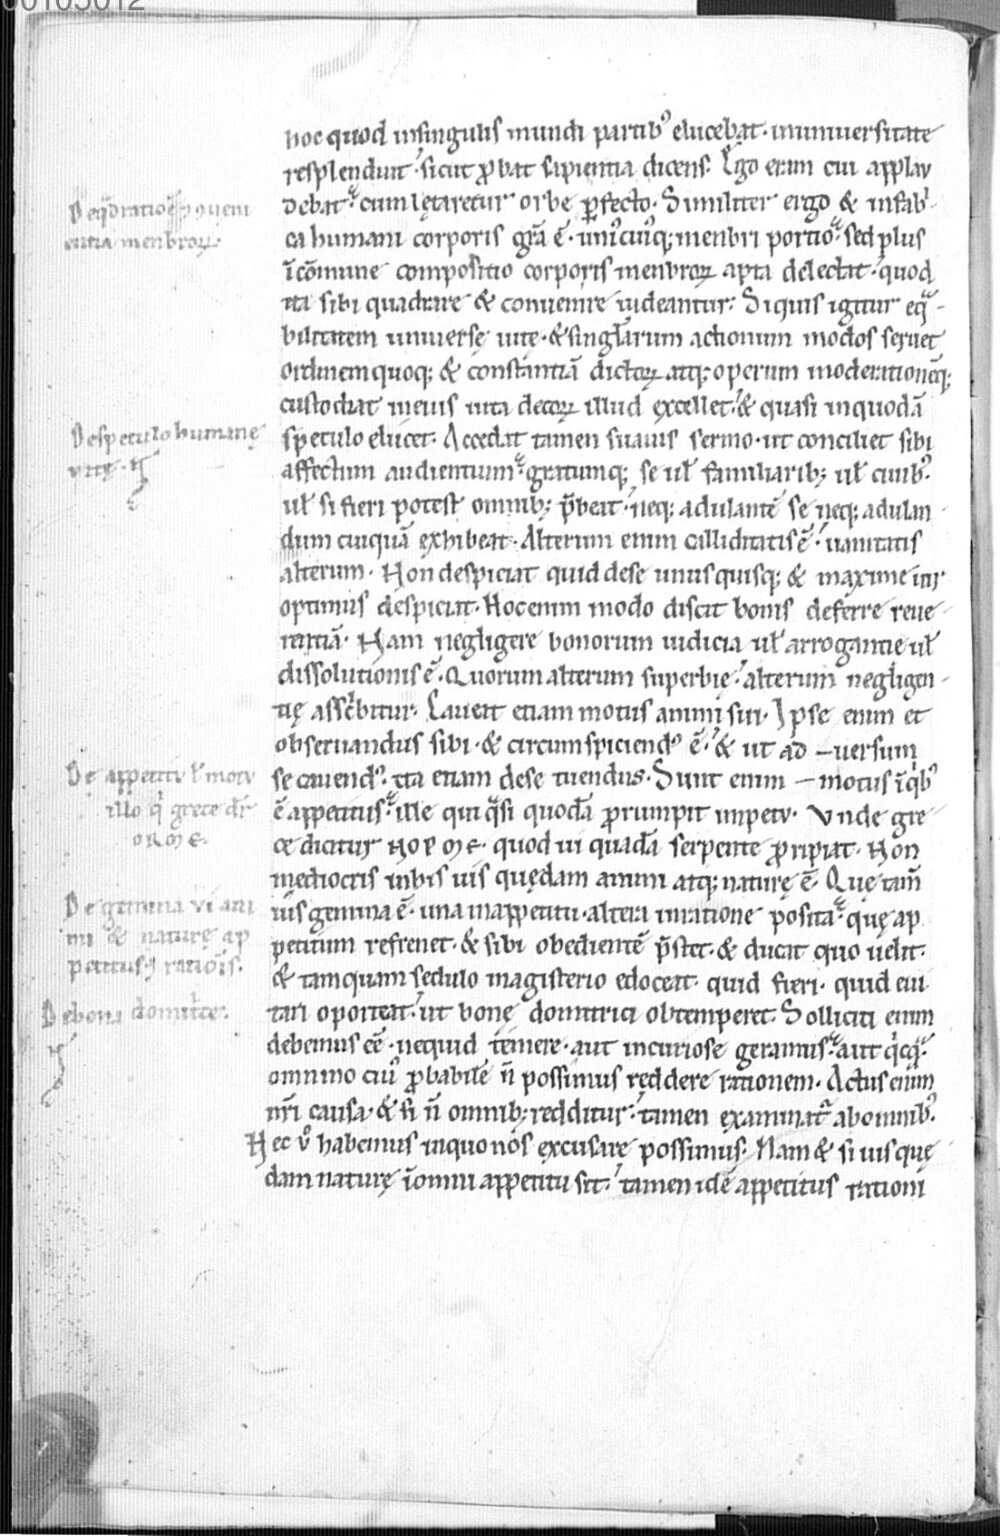 00105012
hoc quod insingulis mundi partib᾽ elucebat· inuniuersitate
resplenduit· sicut ꝓbat sapientia dicens. Ego eram cui applau
debat· cum lętaretur orbe ꝑfecto· Similiter ergo & infab᾽
ca humani corporis gr̄a ē· uni᾽cui᾽q; menbri portio· sed plus
īcōmune compositio corporis menbroꝝ apta delectat· quod
ita sibi quadrare & conuenire uideantur· Siquis igitur eq̄
bilitatem uniuersę uitę· & singl̄arum actionum modos seruet
ordinem quoq; & constantiā dictoꝝ atq; operum moderationēq;
custodiat ineius uita decoꝝ illud excellet· & quasi inquodā
speculo elucet· Accedat tamen suauis sermo· ut conciliet sibi
affectum audientium· gratumq; se ul̄ familiarib; ul̄ ciuib᾽·
ul̄ si fieri potest omnib; p̄beat· neq; adulantē se neq; adulan
dum cuiquā exhibeat· Alterum enim calliditatis ē· uanitatis
alterum· Non despiciat quid dese unusquisq; & maxime uir
optimus despiciat· Hoc enim modo discit bonis deferre reue
rentiā· Nam negligere bonorum iudicia ul̄ arrogantie ul̄
dissolutionis ē· Quorum alterum superbię· alterum negligen
tię asscͥbitur· Caueat etiam motus animi sui· Ipse enim et
obseruandus sibi· & circumspiciend᾽ ē· & ut ad – uersum
se cauend᾽· ita etiam dese tuendus· Sunt enim – motus īqͥb᾽
ē appetitus· ille qui q̄si quodā ꝓrumpit impetu· Unde gre
ce dicitur HORME· quod ui quadā serpente ꝓripiat· Non
mediocris inhis uis quędam animi atq; naturę ē· Quę tam̄
uis gemina ē· una inappetitu· altera inratione posita· quę ap
petitum refrenet· & sibi obedientē p̄stet· & ducat quo uelit·
& tamquam sedulo magisterio edoceat· quid fieri· quid eui
tari oporteat· ut bonę domitrici obtemperet· Solliciti enim
debemus eē· nequid temere· aut incuriose geramus· aut qͥcq̄·
omnino cui᾽ ꝓbabilē n̄ possimus reddere rationem· Actus enim
nr̄i causa· & si n̄ omnib; redditur· tamen examinat᾽ abomnib᾽·
Nec v̊ habemus inquo nos excusare possimus· Nam & si uis quę
dam naturę īomni appetitu sit· tamen idē appetitus rationi
menbroꝝ·
De speculo humanę
uitę·
De appetitu ł motu
illo qͥ grece dr̄
ORME·
De gemina vi ani
mi & naturę ap
petitus· ⁊ ratiōis·
De bona domitͥce·